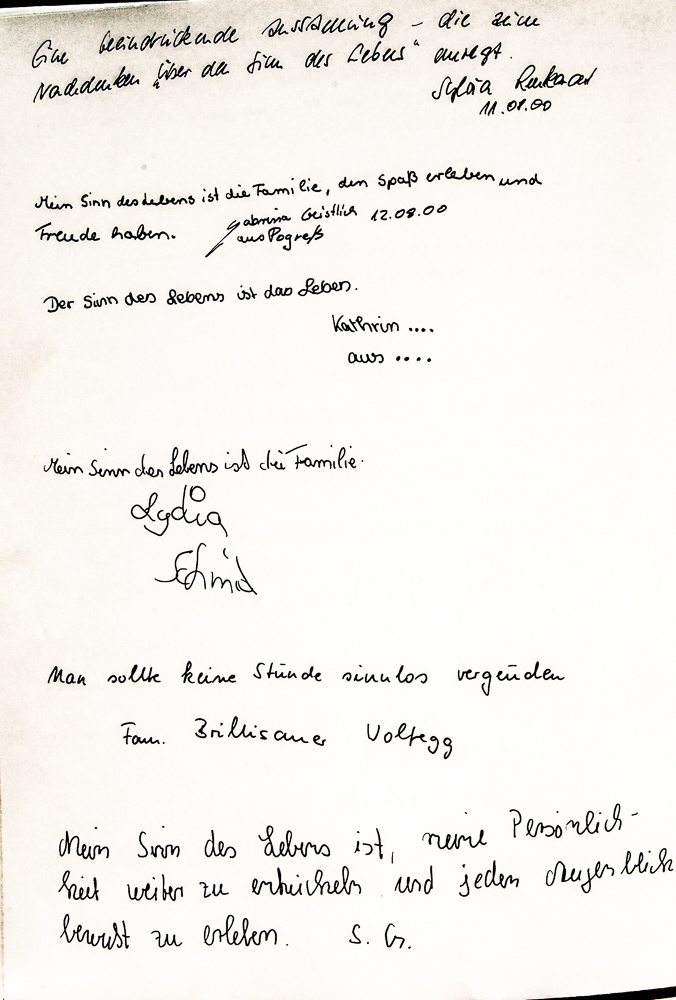 Eine beeindruckende Ausstellung – die zum
Nachdenken "über den Sinn des Lebens" anregt.
Sylvia
11.08.00
Mein Sinn des Lebens ist die Familie, den Spaß erleben und
Freude haben.
Sabrina Geistlich 12.08.00
aus Pogreß
Der Sinn des Lebens ist das Leben.
Kathrin ....
aus ....
Mein Sinn des Lebens ist die Familie.
Lydia
Schmid
Man sollte keine Stunde sinnlos vergeuden
Fam. Brillisauer Voltegg
Mein Sinn des Lebens ist, meine Persönlich-
keit weiter zu entwickeln und jeden Augenblick
bewußt zu erleben. S. G.